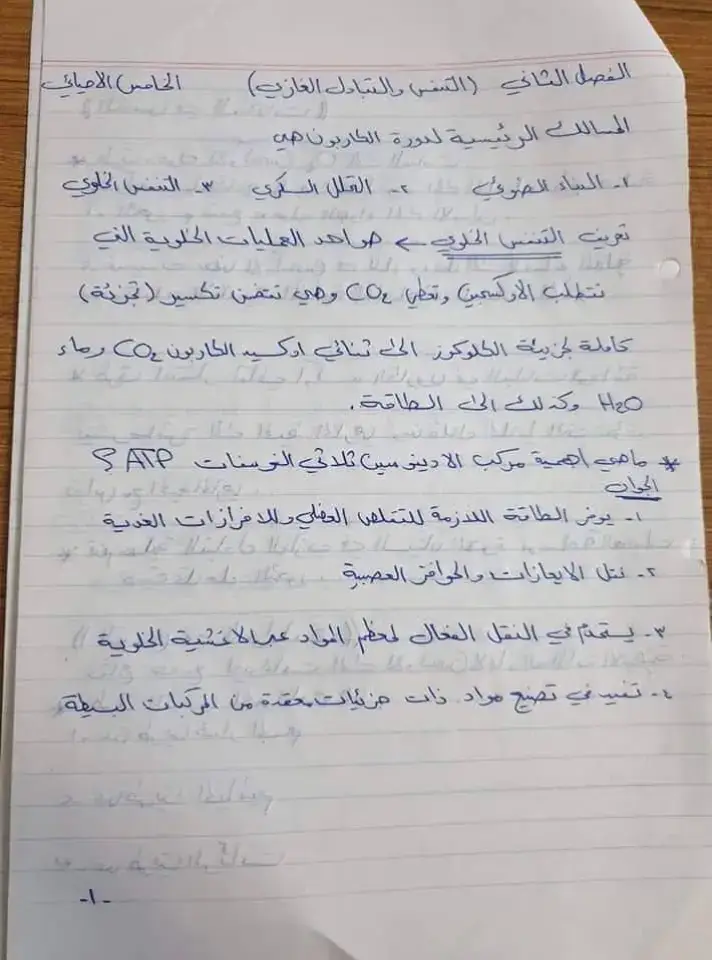 الفصل الثاني (التنفس والتبادل الغازي) الخامس الاحيائي
المسالك الرئيسية لدورة الكاربون هي
١- البناء الضوئي ٢- التحلل السكري ٣- التنفس الخلوي
تعريف التنفس الخلوي ← هو احد العمليات الخلوية التي
تتطلب الاوكسجين وتعطي CO₂ وهي تتضمن تكسير (تجزئة)
كاملة لجزيئة الكلوكوز الى ثنائي اوكسيد الكاربون CO₂ وماء
H₂O وكذلك الى الطاقة.
* ماهي اهمية مركب الادينوسين ثلاثي الفوسفات ATP ؟
الجواب
١- يوفر الطاقة اللازمة للتقلص العضلي وللافرازات الغدية
٢- نقل الايعازات والحوافز العصبية
٣- يستخدم في النقل الفعال لمعظم المواد عبر الاغشية الخلوية
٤- تفيد في تصنيع مواد ذات جزيئات معقدة من المركبات البسيطة
-١-